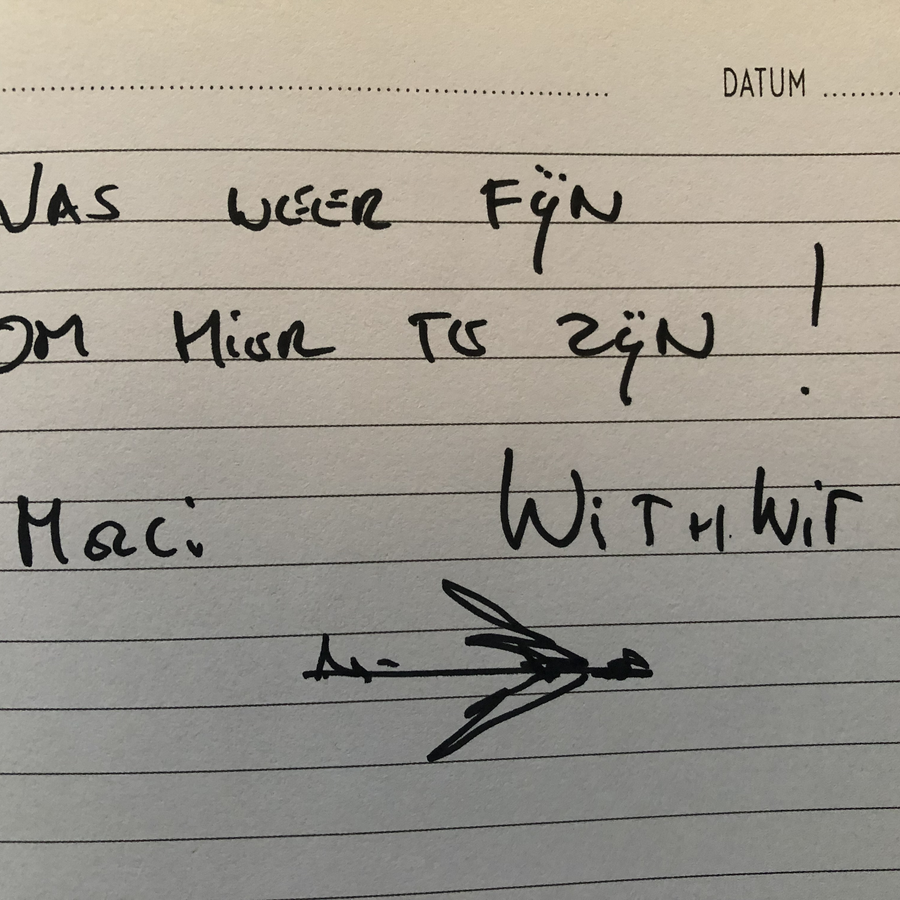 DATUM
WAS WEER FŸN
OM HIER TE ZŸN !
MERCI WITH.WIT